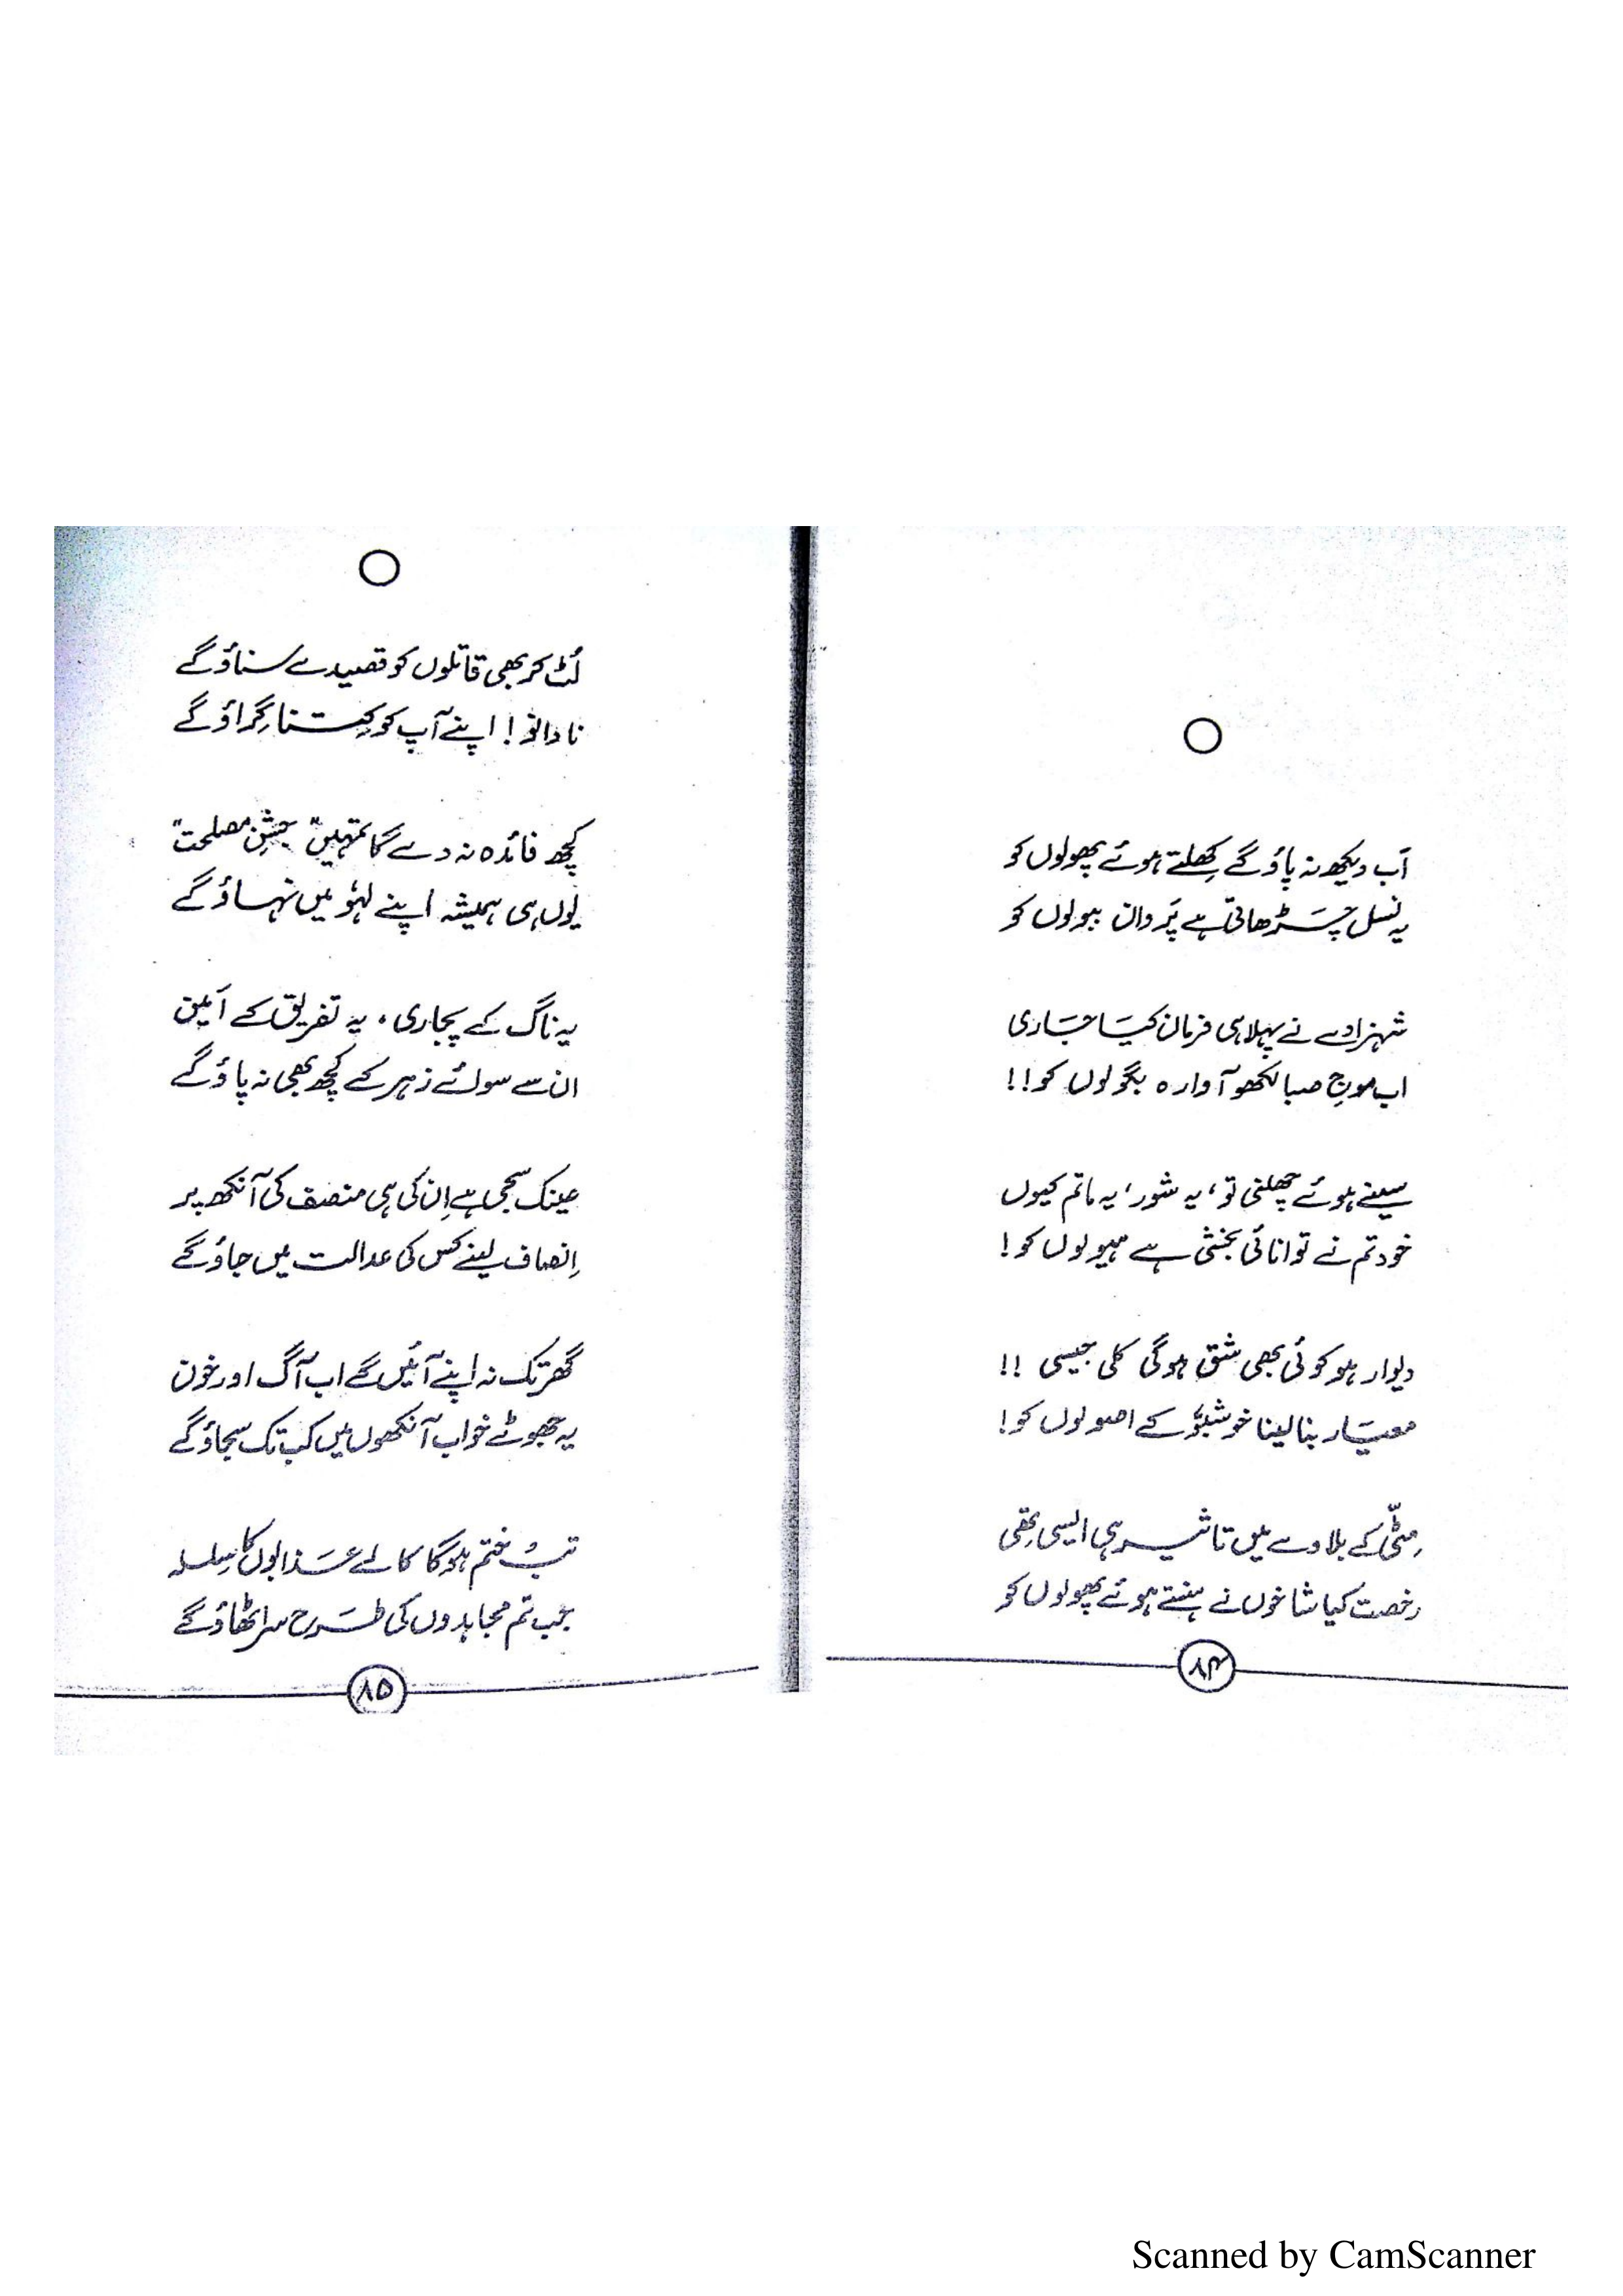 اَب دیکھ نہ پاؤ گے کِھلتے ہوئے پھولوں کو
یہ نسل چَڑھاتی ہے پَروان ببولوں کو
شہزادے نے پہلا ہی فرمان کیَا جَاری
اب موجِ صبا لکھو آوارہ بگولوں کو!!
سینے ہوئے چھلنی تو، یہ شور، یہ ماتم کیوں
خود تم نے توانائی بخشی ہے ہیولوں کو!
دیوار ہو کوئی بھی شق ہوگی کلی جیسی !!
معیَار بنا لینا خوشبُو کے اصولوں کو!
مِٹّی کے بلاوے میں تاثیر ہی ایسی تھی
رخصت کیا شاخوں نے ہنستے ہوئے پھولوں کو
۸۴
لُٹ کر بھی قاتلوں کو قصیدے سناؤ گے
نادانو! اپنے آپ کو کِتنا گِراؤ گے
کچھ فائدہ نہ دے گا تمہیں "جشنِ مصلحت"
یوں ہی ہمیشہ اپنے لہُو میں نہاؤ گے
یہ ناگ کے پجاری، یہ تفریق کے اَمین
ان سے سوائے زہر کے کچھ بھی نہ پاؤ گے
عینک سجی ہے اِن کی ہی منصف کی آنکھ پر
اِنصاف لینے کس کی عدالت میں جاؤ گے
گھر تک نہ اپنے آئیں گے اب آگ اور خون
یہ جھوٹے خواب آنکھوں میں کب تک سجاؤ گے
تب ختم ہوگا کالے عَذابوں کا سِلسلہ
جب تم مجاہدوں کی طَرح سر اٹھاؤ گے
۸۵
Scanned by CamScanner